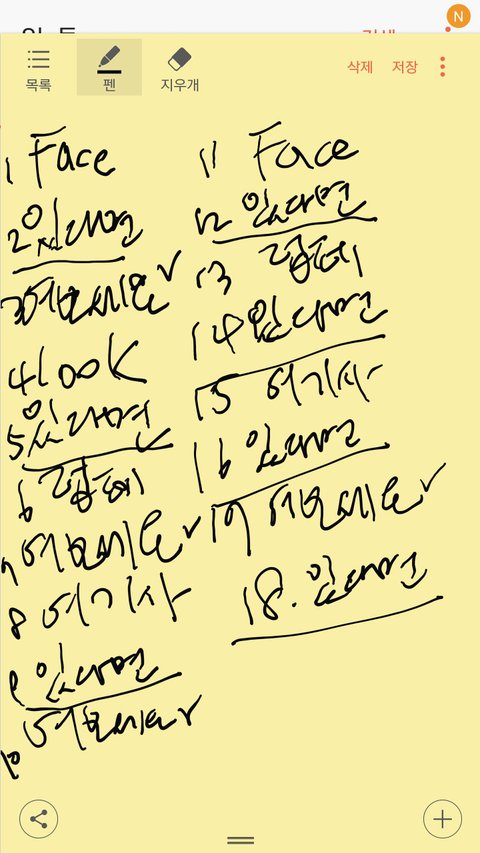 N
목록
펜
지우개
삭제 저장
1 Face
2 있다면
3 여보세요
4 look
5 있다면
6 컴퓨터
7 여보세요
8 여기자
9 있다면
10 여보세요
11 Face
12 있다면
13
14 있다면
15 여기자
16 있다면
17 여보세요
18. 있다면